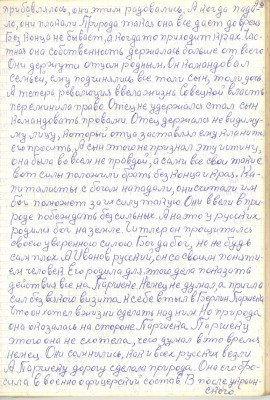 прибавлялось, они этим радовались. А когда пода-
ло, они плакали. Природа такая она все дает до врем.
Без конца не бывает, а когда то приходит крах. Час-
тная она собственность держалась больше от всего
Они держута отцам родным. Он командовал
семьей, ему подчинялись все тали сын, то ли дочь
А теперь революция ввела жизнь Советской власть
переменило право. Отец не удержался стал сын
командовать правами. Отец держал не видиму-
му лику, который отца заставлял ему кланять
его просить. А сын этого не признал эту итину,
она была во всем не правдой, а сами все свои такие
вот силы положили брать без конца и края. Ка-
питалисты с богом нападали, они считали им
бог поможет за силу такую. Они ввели в при-
роде победять бессильных. А на то у русских
родили бог на земле. Гитлер он прощитался
своего уверенного силою Бога да бог, но не будь
сам плох. А Иванов русский, он со своим поняти-
ем человек. Его родила для этого дела показать
действия все на Паршека. Немец не думал а пришла
сил без всякого визита. К себе втыл в Берлин Паршека
Что он хотел в жизни сделать над ним. Но природа
она оказалась на стороне Паршека. А Паршеку
этого она не схотела, чего думал в это время
немец. Они сомнились, как и всех русских вели
А Паршеку дорогу сделала природа. Она его бро-
сила в военно офицерский состав. В после украин-
ского